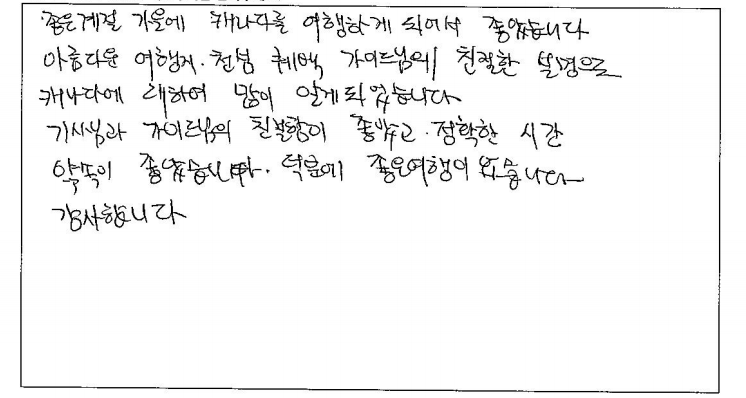 좋은계절 가을에 캐나다를 여행하게 되어서 좋았습니다
아름다운 여행지. 천섬 퀘벡 가이드님의 친절한 설명으로
캐나다에 대하여 많이 알게되었습니다
기사님과 가이드님의 친절함이 좋았고. 정확한 시간
약속이 좋았습니다. 덕분에 좋은여행이 었습니다
감사합니다